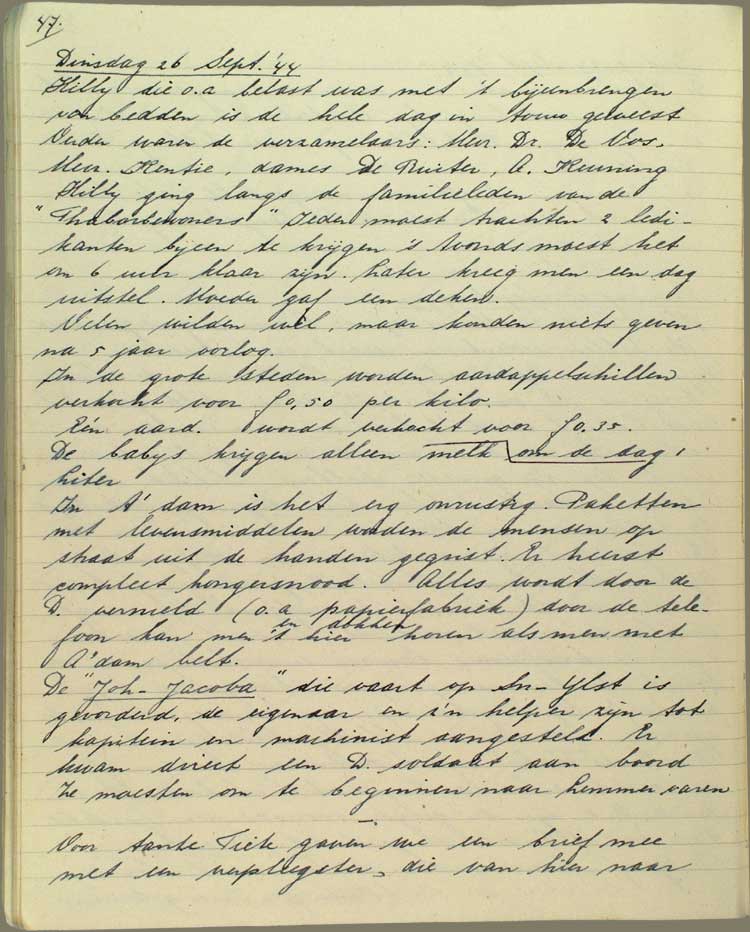 47.
Dinsdag 26 Sept. '44
Hilly die o.a belast was met 't bijeenbrengen
van bedden is de hele dag in touw geweest
Verder waren de verzamelaars: Mevr. Dr. De Vos.
Mevr. Kentie, dames De Ruiter, A. Keuning
Hilly ging langs de familieleden van de
"Thaborbewoners" Ieder moest trachten 2 ledi-
kanten bijeen te krijgen 's Avonds moest het
om 6 uur klaar zijn. Later kreeg men een dag
uitstel. Moeder gaf een deken.
Velen wilden wel, maar konden niets geven
na 5 jaar oorlog.
In de grote steden worden aardappelschillen
verkocht voor f 0,50 per kilo.
Eén aard. wordt verkocht voor f 0.35.
De babys krijgen alleen melk om de dag 1
liter
In A'dam is het erg onrustig. Paketten
met levensmiddelen worden de mensen op
straat uit de handen gegrist. Er heerst
compleet hongersnood. Alles wordt door de
D. vernield (o.a papierfabriek) door de tele-
en dokken
foon kan men 't hier horen als men met
A'dam belt.
De "Joh- Jacoba" die vaart op Sn- Ylst is
gevorderd, de eigenaar en z'n helper zijn tot
kapitein en machinist aangesteld. Er
kwam direct een D. soldaat aan boord
Ze moesten om te beginnen naar Lemmer varen
Voor tante Tiete gaven we een brief mee
met een verpleegster, die van hier naar